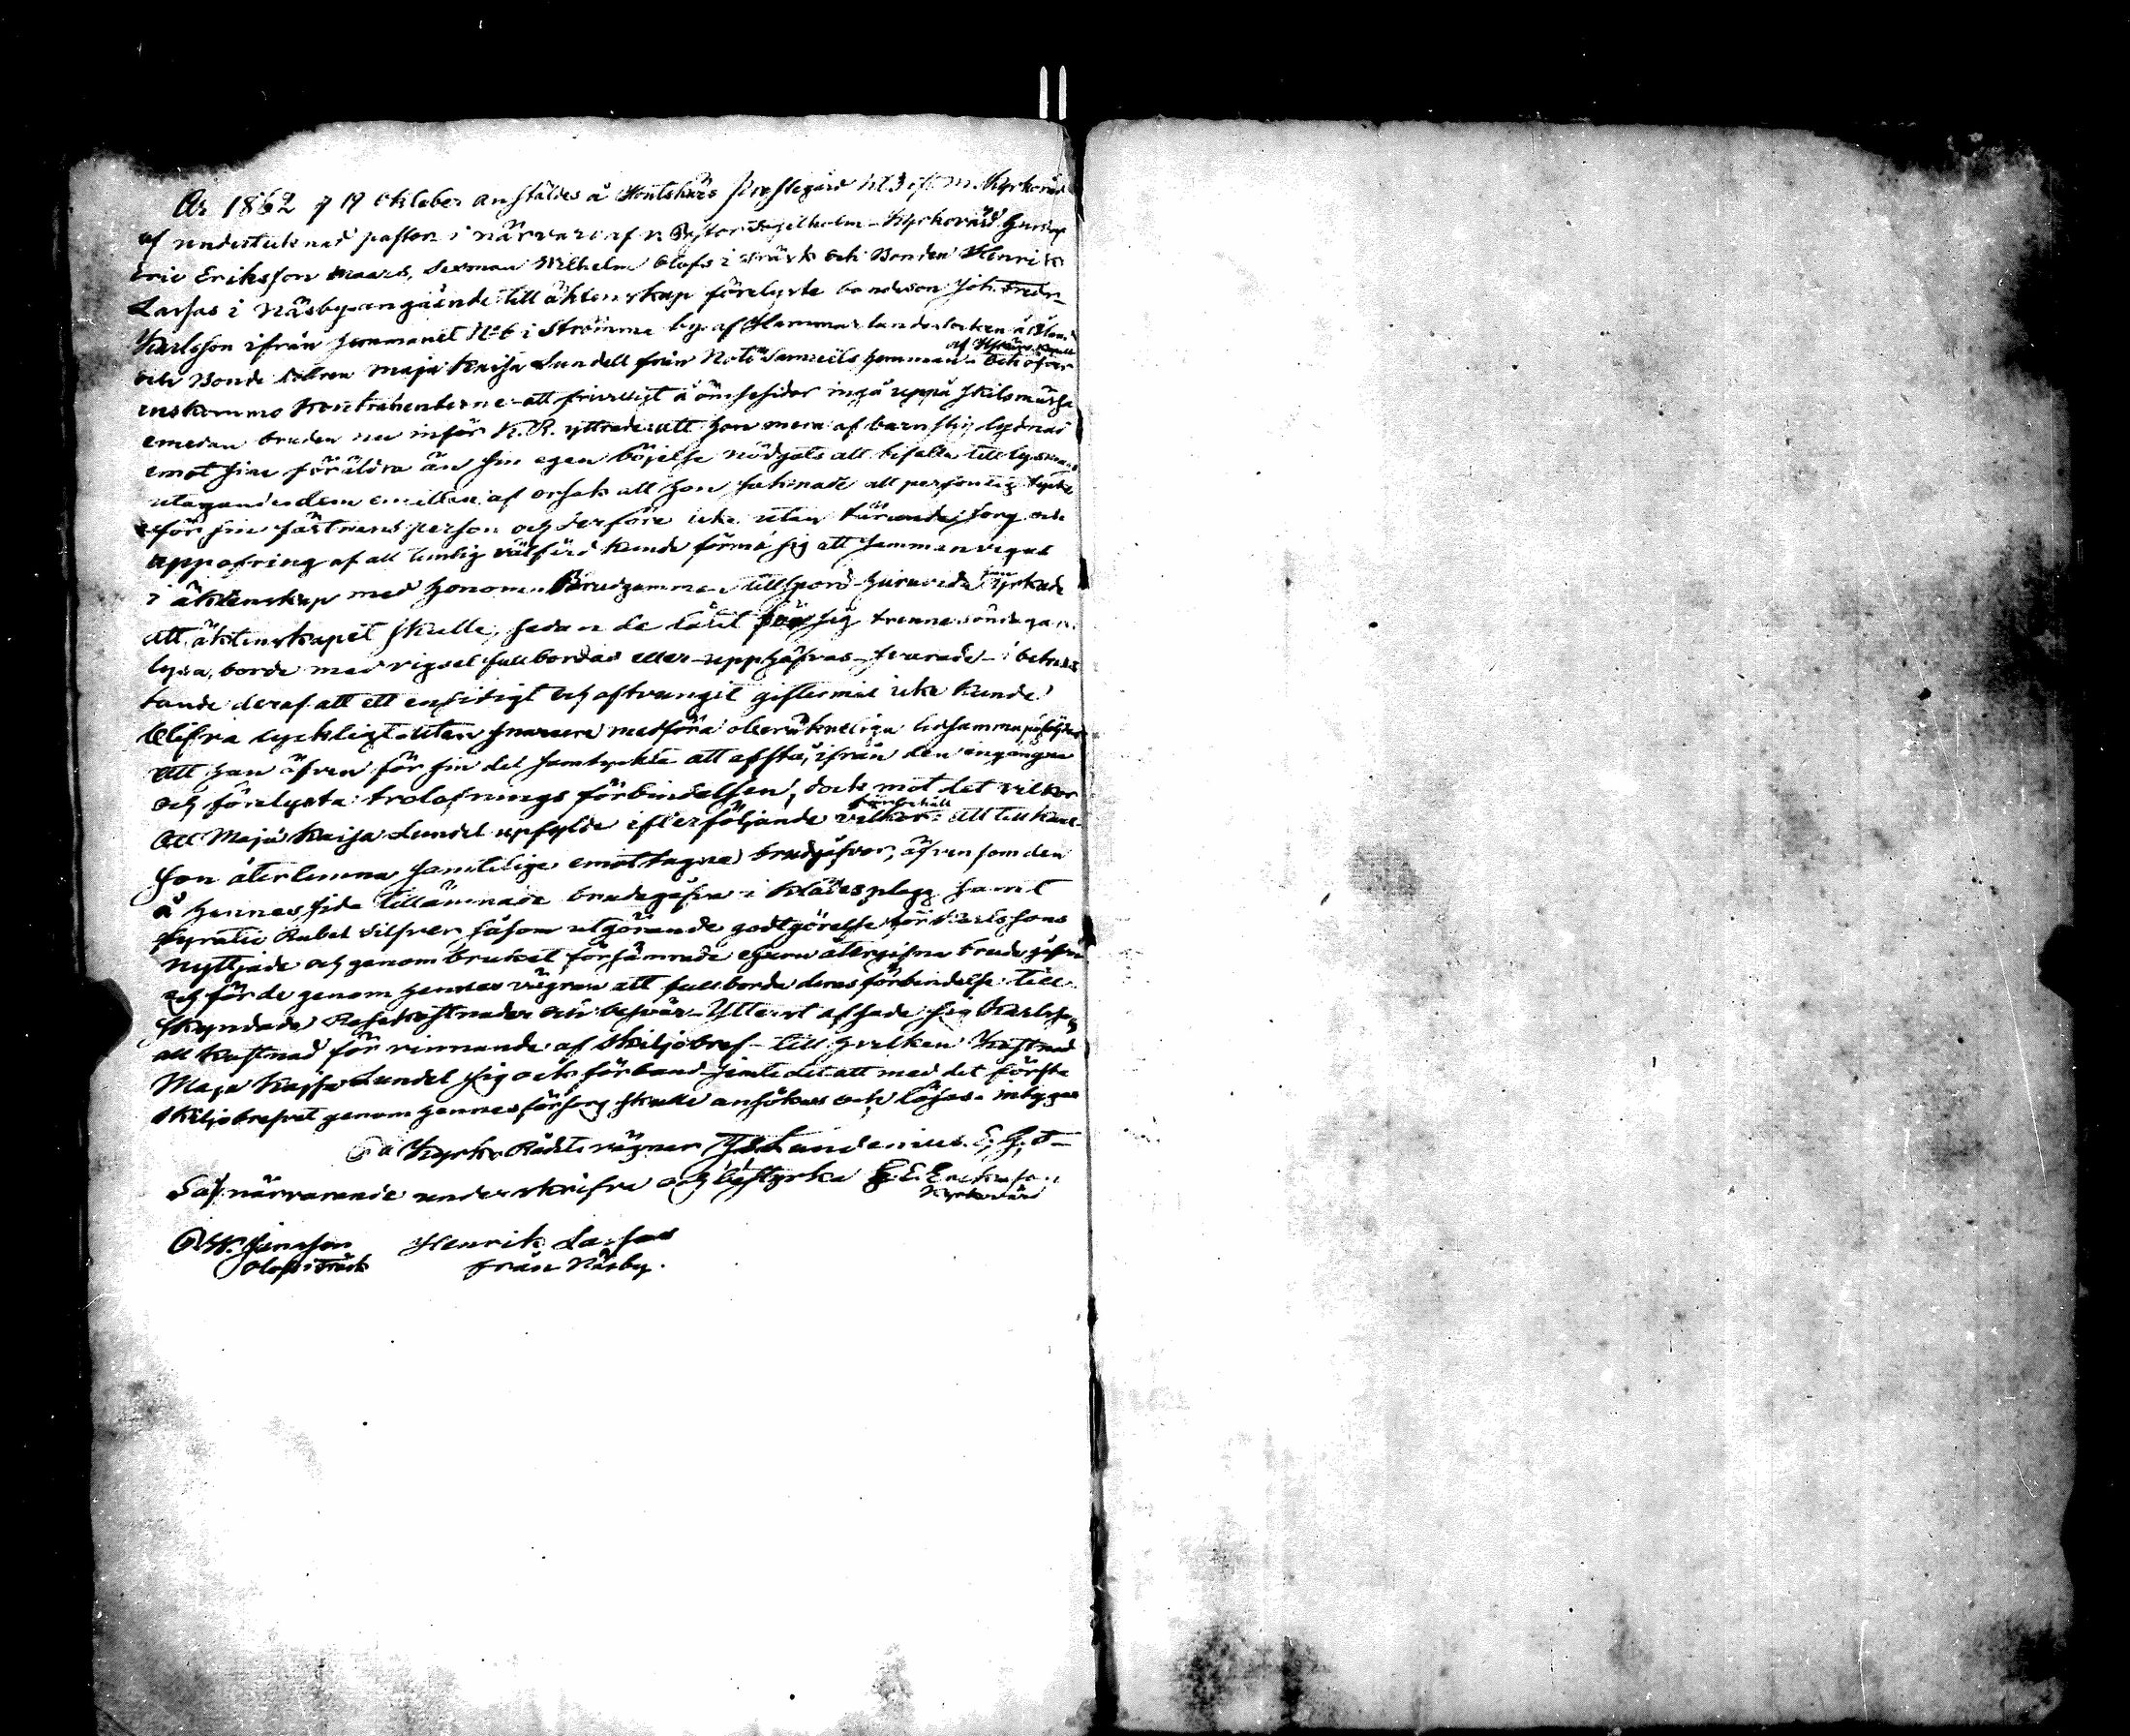 År 1862 d 19 October anstäldes å Houtskärs prestegård kl 3 e. m. Kyrkoråd
af undertecknad pastor i närvaro af v. Pastor Kyrkovärd
Eric Eriksson Maars, Sexman Wilhelm Olofs i Träsk och Bonden Henrik
Larsas i Näsby angående till äktenskap förelyste bondeson Joh. Fredr.
Karlsson ifrån hemmanet No 6 i Strömma by af Hammarlands socken å Åland
och Bonde dottren Maja Kaisa Lundell från Nötö Samuels hemman - och öfver
enskommo Kontrahenterne - att frivilligt å ömsesidor ingå uppå skilsmässa
emedan bruden nu inför K. R. yttrade att hon mera af barnslig lydnad
emot sine föräldra än sin egen böjelse nödgats att bifalla till lysning
utagande dem emillan af orsak att hon saknade all personlig tycke
för sin fästmans person och derföre icke utan tärande sorg och
uppofring af all timlig välfärd kunde förmå sig att sammanvigas
i äktenskap med honom. Brudgummen tillspord huruvida han yrkade
att äktenskapet skulle, sedan de låtit för sig trenne söndagar
lysa, borde med vigsel fullbordas eller upphäfvas - svarade - i betrak
tande deraf att ett ensidigt och oftvunget giftermål icke kunde
blifva lyckligt utan snarare medföra oberäkneliga ledsamma påföljder
att han äfven för sin del samtyckte att afstå ifrån den ingångna
och förelysta trolofnings förbindelsen, dock mot det vilkor
förbehåll
Att Maja Kaisa Lundel upfylde efterföljande vilkor: att till Karl-
son återlemna samtelige emottagna brudgåfvor, äfven som den
å hennes sida tillämnade brudegåfva i klädesplagg samt
fyratie Rubel silfver såsom utgörande godtgörelse för Karlssons
nyttjade och genom bruket försämrade egna återgifna brudegåfvor
och för de genom hennes vägran att fullborda deras förbindelse till
skyndade Resekostnader och besvär - Ytterst afsade sig Karlsson
all kostnad för vinnande af skiljobref - till hvilken kostnad
Maja Kajsa Lundel sig ock förband - jemte det att med det första
skiljobrefvet genom hennes försorg skulle ansökas och lösas. intygas
På Kyrko Rådets vägnar Lundenius.
Såsom närvarande underskrifva och bestyrka E. E. Eriksson
Kyrkovärd
O. W. Jansson Henrik Larsas
Olofs i Träsk från Näsby.